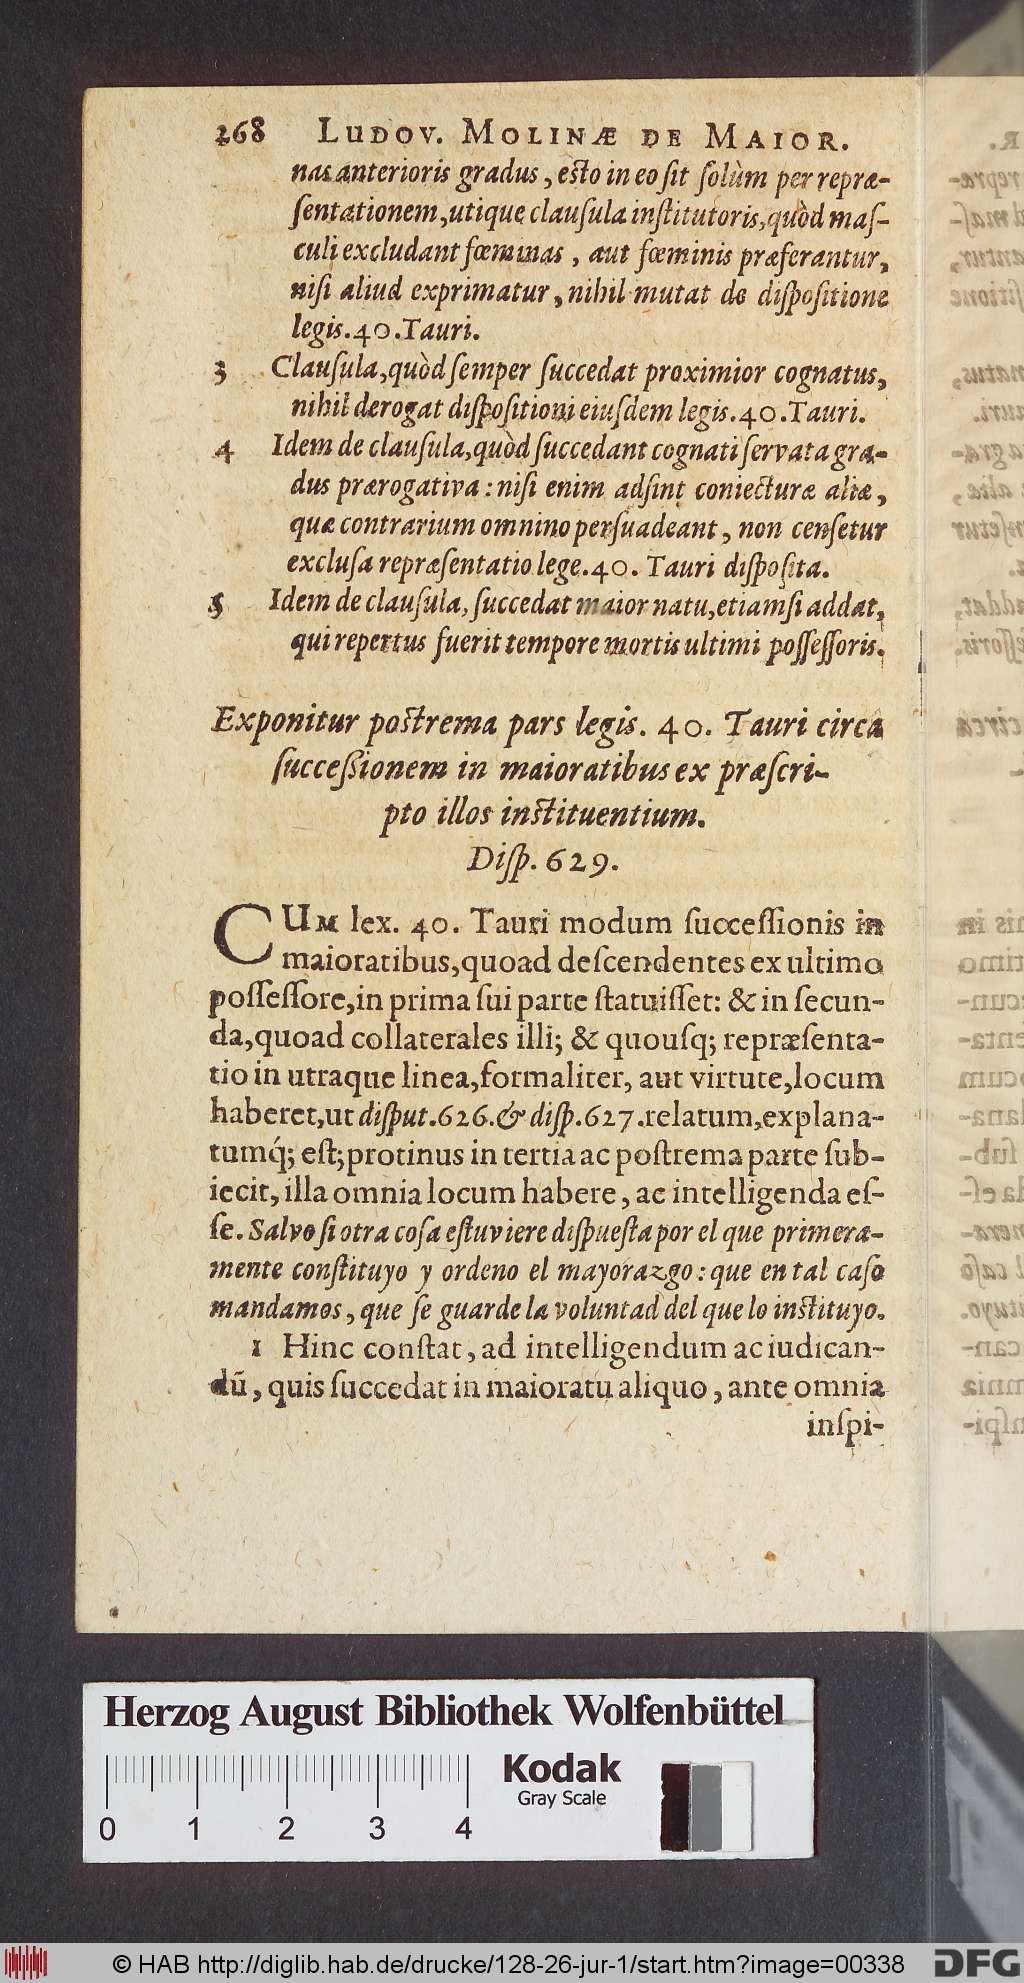 268 LUDOV. MOLINÆ DE MAIOR.
nas anterioris gradus, esto in eo sit solùm per repræ-
sentationem, utique clausula institutoris, quòd mas-
culi excludant fœminas, aut fœminis præferantur,
nisi aliud exprimatur, nihil mutat de dispositione
legis. 40. Tauri.
3 Clausula, quòd semper succedat proximior cognatus,
nihil derogat dispositioni eiusdem legis. 40. Tauri.
4 Idem de clausula, quòd succedant cognati servata gra-
dus prærogativa: nisi enim adsint coniecturæ aliæ,
quæ contrarium omnino persuadeant, non censetur
exclusa repræsentatio lege. 40. Tauri disposita.
5 Idem de clausula, succedat maior natu, etiamsi addat,
qui repertus fuerit tempore mortis ultimi possessoris.
Exponitur postrema pars legis. 40. Tauri circa
successionem in maioratibus ex præscri-
pto illos instituentium.
Disp. 629.
CUM lex. 40. Tauri modum successionis in
maioratibus, quoad descendentes ex ultimo
possessore, in prima sui parte statuisset: & in secun-
da, quoad collaterales illi; & quousq; repræsenta-
tio in utraque linea, formaliter, aut virtute, locum
haberet, ut disput. 626. & disp. 627. relatum, explana-
tumq́; est; protinus in tertia ac postrema parte sub-
iecit, illa omnia locum habere, ac intelligenda es-
se. Salvo si otra cosa estuviere dispuesta por el que primera-
mente constituyo y ordeno el mayorazgo: que en tal caso
mandamos, que se guarde la voluntad del que lo instituyo.
1 Hinc constat, ad intelligendum ac iudican-
dũ, quis succedat in maioratu aliquo, ante omnia
inspi-
Herzog August Bibliothek Wolfenbüttel
0 1 2 3 4
Kodak
Gray Scale
© HAB http://diglib.hab.de/drucke/128-26-jur-1/start.htm?image=00338
DFG